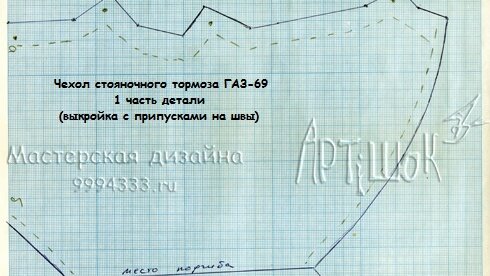 Чехол стояночного тормоза ГАЗ-69
1 часть детали
(выкройка с припусками на швы)
Мастерская дизайна
АРТіШЪК
9994333.ru
место подгиба